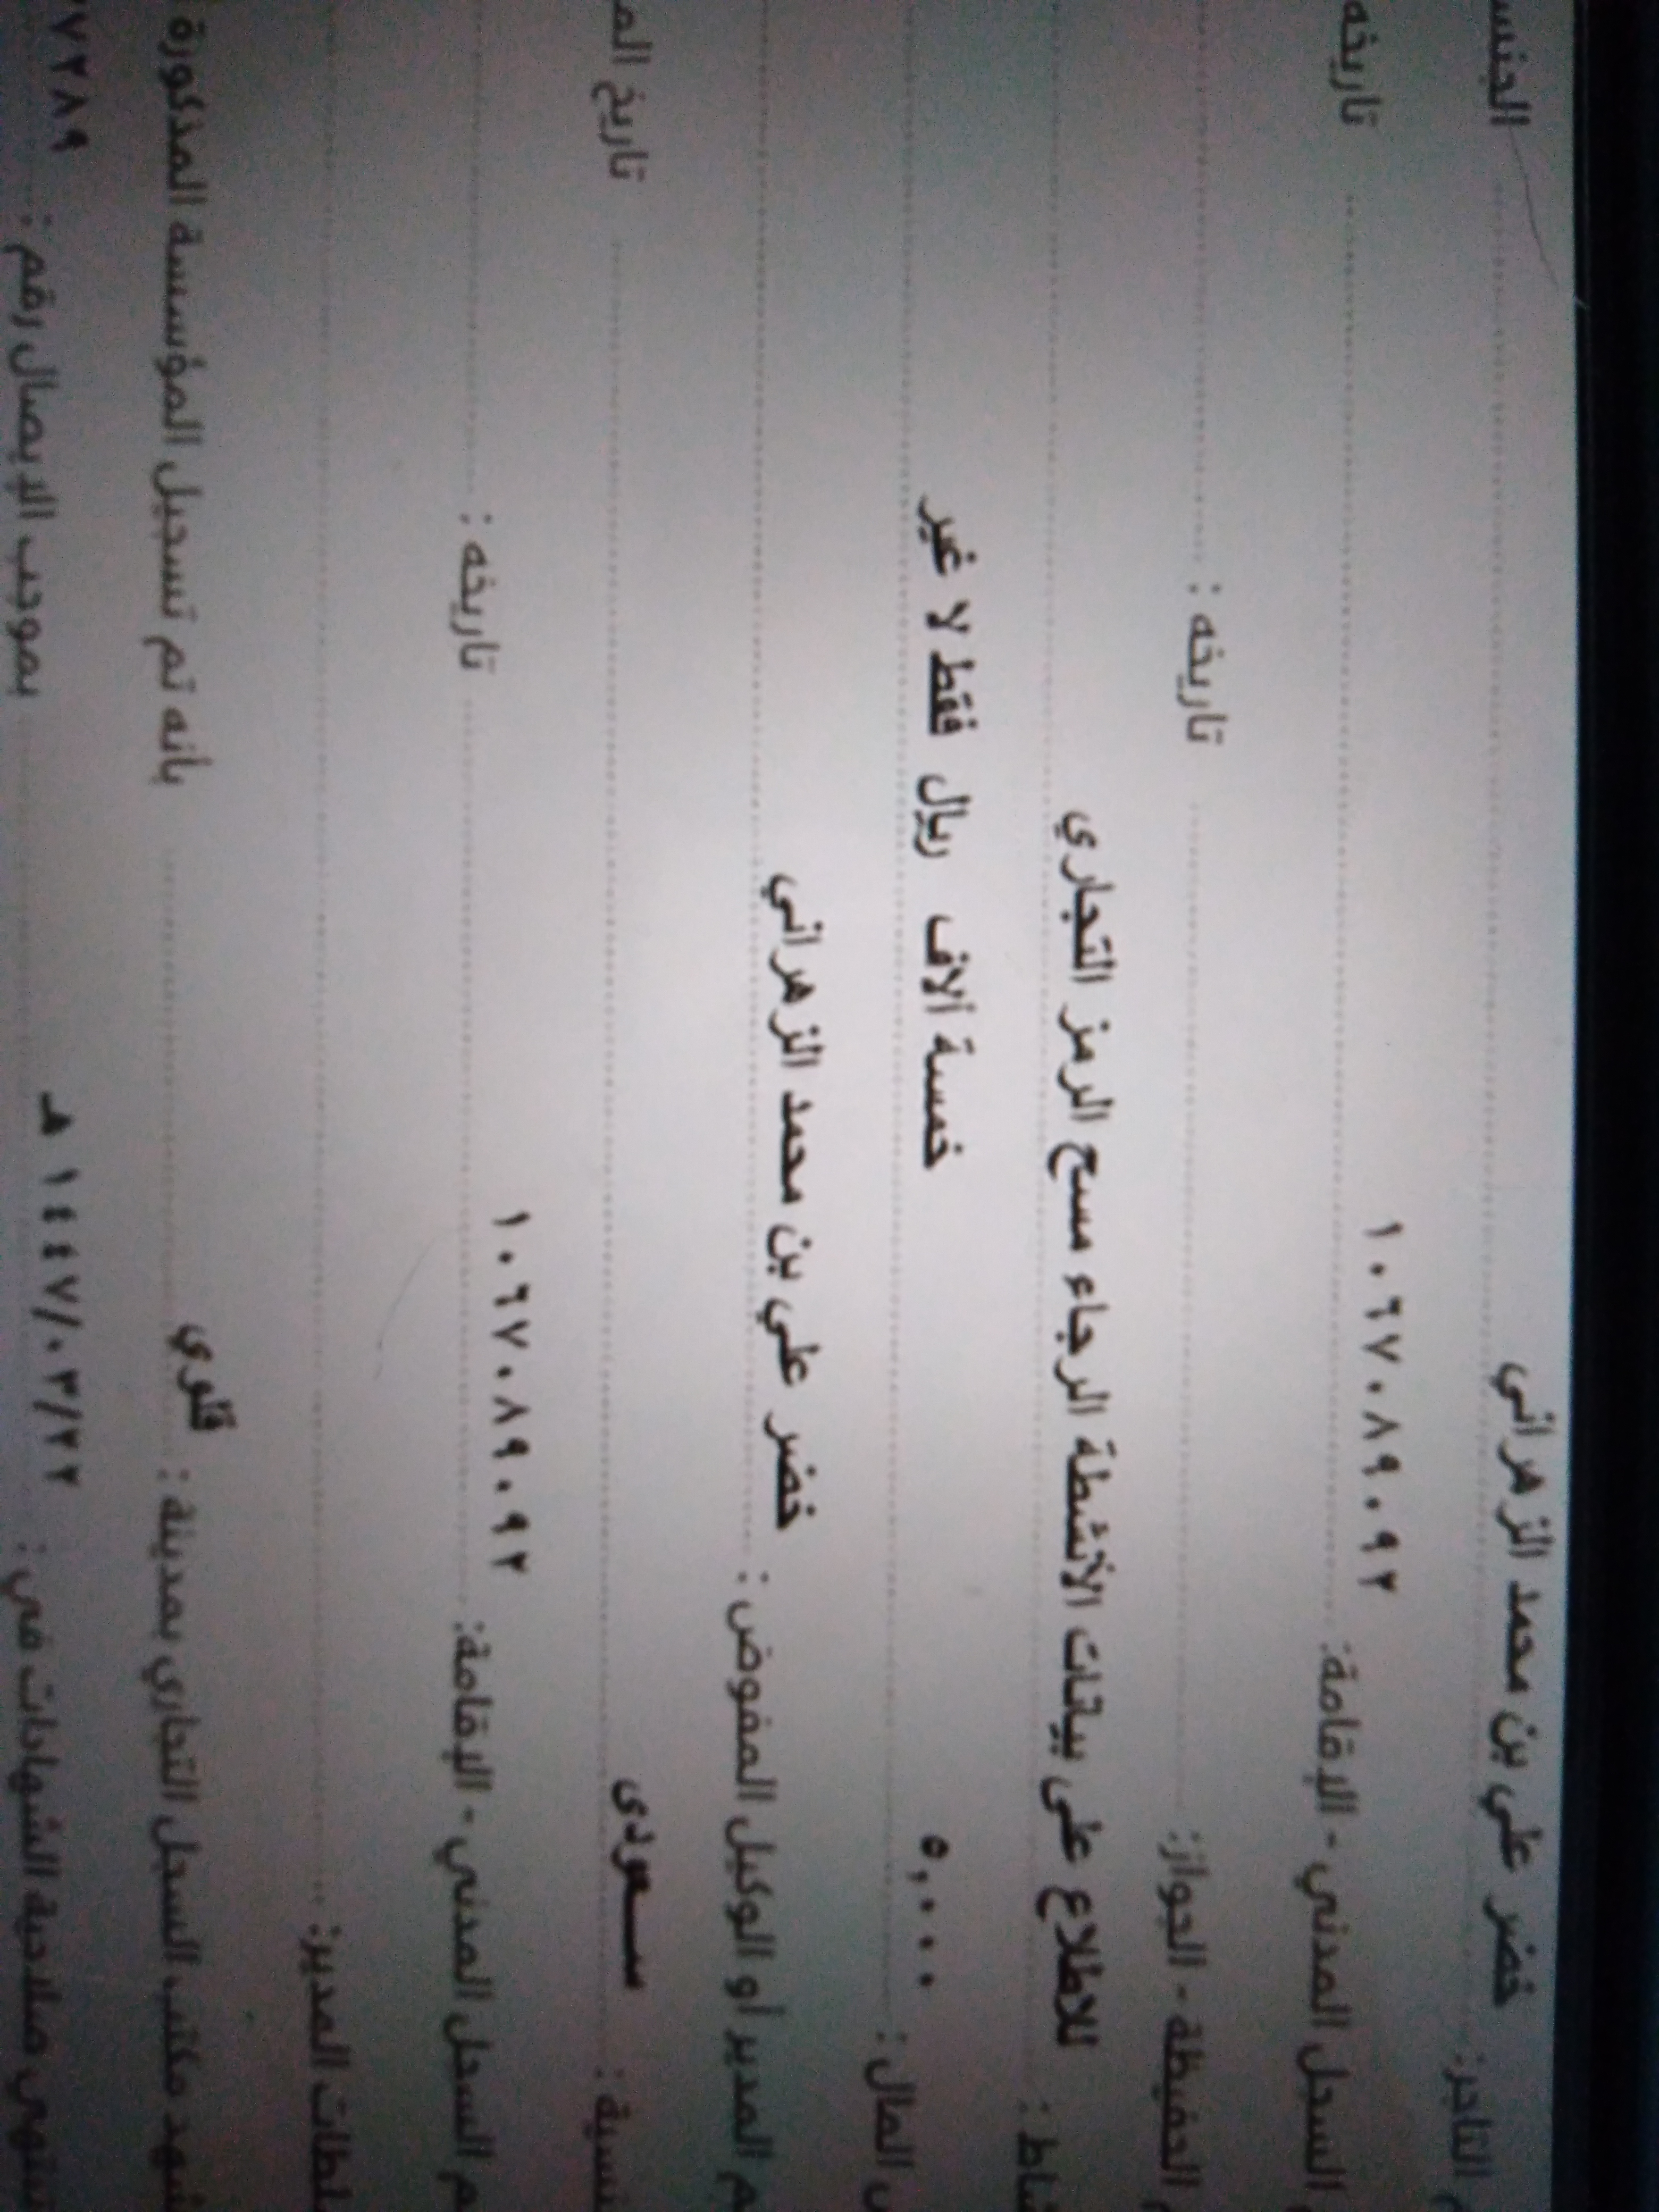 التاجر: خضر علي بن محمد الزهراني الجنس
السجل المدني - الإقامة: ١٠٦٧٠٨٩٠٩٢ تاريخه
الحفيظة - الجواز: تاريخه :
للاطلاع على بيانات الأنشطة الرجاء مسح الرمز التجاري
المال : ٥,٠٠٠ خمسة آلاف ريال فقط لا غير
المدير أو الوكيل المفوض : خضر علي بن محمد الزهراني
سعودى تاريخ
السجل المدني - الإقامة: ١٠٦٧٠٨٩٠٩٢ تاريخه :
المدير:
مكتب السجل التجاري بمدينة : قلوي بأنه تم تسجيل المؤسسة المذكورة
صلاحية الشهادات في : ١٤٤٧/٠٣/٢٢ هـ بموجب الإيصال رقم : ٧٢٨٩